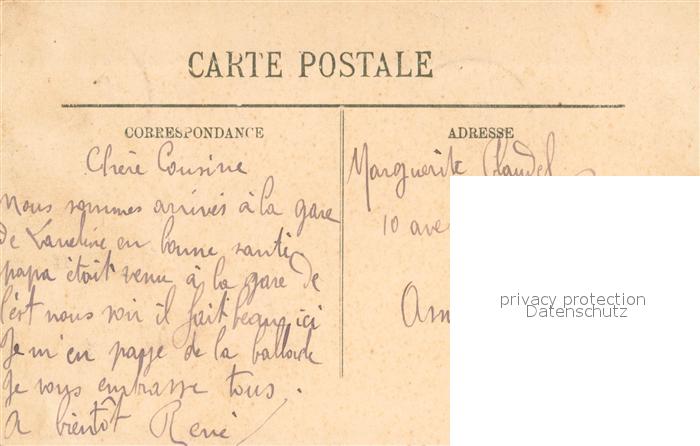 CARTE POSTALE
CORRESPONDANCE
ADRESSE
Chère Cousine
Marguerite Claudel
Nous sommes arrivés à la gare
10 ave
de en bonne santé
papa étoit venu à la gare de
l'est nous voir il fait beau ici
Am
privacy protection
Datenschutz
Je m'en paye de la ballade
Je vous embrasse tous.
A bientôt René